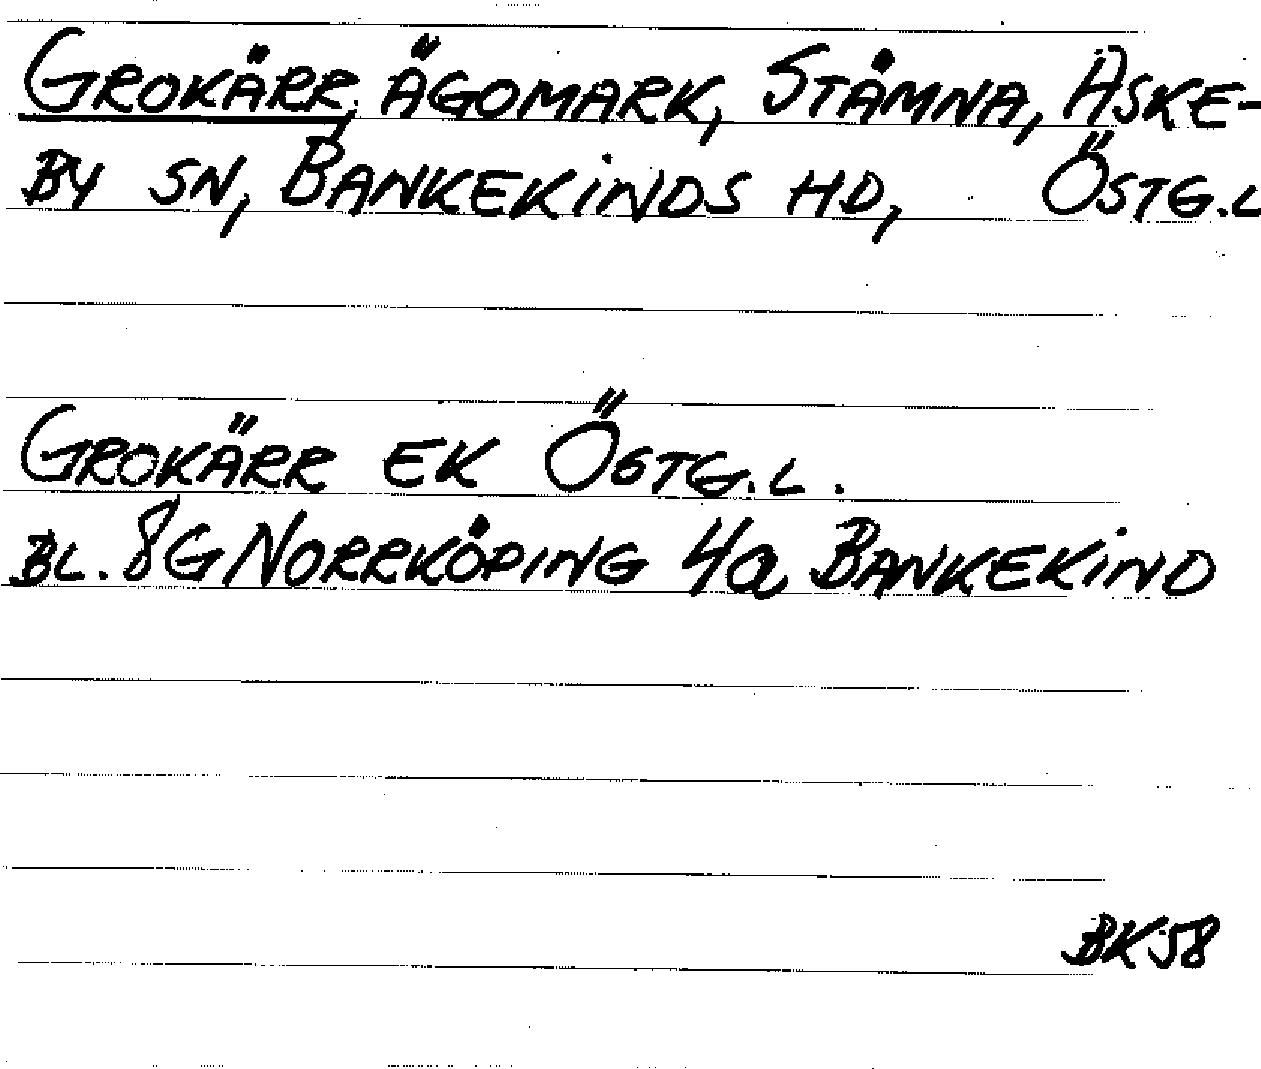 GROKÄRR, ÄGOMARK, STÅMNA, ASKE-
BY SN, BANKEKINDS HD, ÖSTG.L
GROKÄRR EK ÖSTG.L.
BL. 8G NORRKÖPING 4a BANKEKIND
BK58